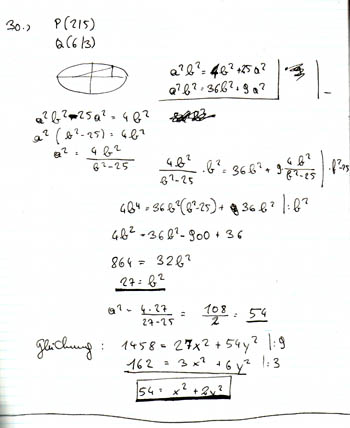 30.)
P(2|5)
Q(6|3)
a²b² = 4b² + 25a²
a²b² = 36b² + 9a²
a²b² - 25a² = 4b²
a² (b² - 25) = 4b²
a² = 4b² / b² - 25
4b² / b² - 25 · b² = 36b² + 9 · 4b² / b² - 25 | · b² - 25
4b⁴ = 36b² (b² - 25) + 36b² | : b²
4b² = 36b² - 900 + 36
864 = 32b²
27 = b²
a² = 4·27 / 27-25 = 108 / 2 = 54
Gleichung : 1458 = 27x² + 54y² | : 9
162 = 3x² + 6y² | : 3
54 = x² + 2y²